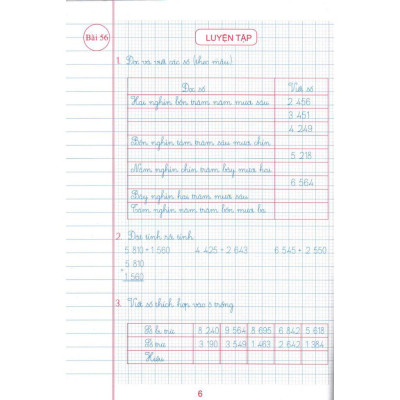 Bài 56
LUYỆN TẬP
1. Đọc và viết các số (theo mẫu)
Đọc số Viết số
Hai nghìn bốn trăm năm mươi sáu 2 456
3 451
4 249
Bốn nghìn tám trăm sáu mươi chín
5 218
Năm nghìn chín trăm bảy mươi hai
6 564
Bảy nghìn hai trăm mười sáu
Tám nghìn năm trăm bốn mươi ba
2. Đặt tính rồi tính
5 810 + 1 560 4 425 + 2 643 6 545 + 2 550
5 810
+
1 560
3. Viết số thích hợp vào ô trống
Số bị trừ 8 240 9 564 8 695 6 842 5 618
Số trừ 3 190 3 549 1 463 2 642 1 384
Hiệu
6